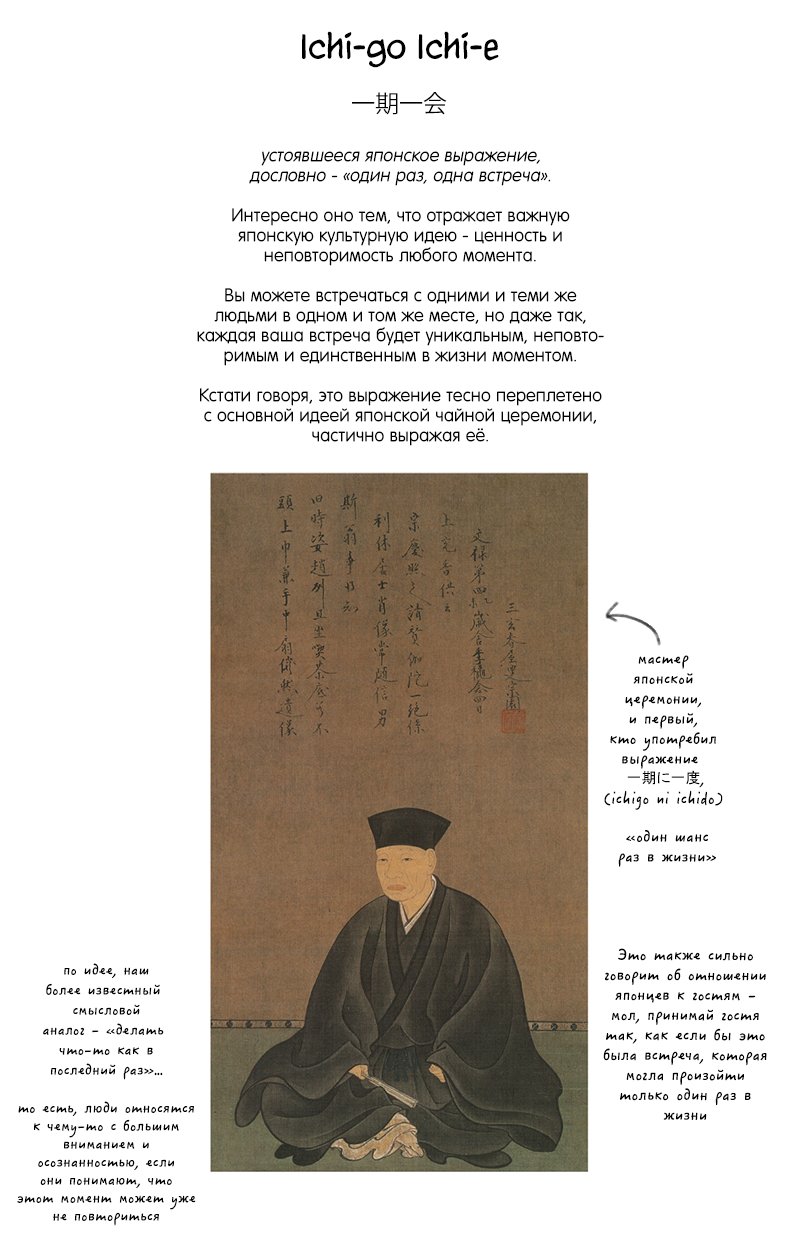 Ichi-go Ichi-e
一期一会
устоявшееся японское выражение,
дословно - «один раз, одна встреча».
Интересно оно тем, что отражает важную
японскую культурную идею - ценность и
неповторимость любого момента.
Вы можете встречаться с одними и теми же
людьми в одном и том же месте, но даже так,
каждая ваша встреча будет уникальным, неповто-
римым и единственным в жизни моментом.
Кстати говоря, это выражение тесно переплетено
с основной идеей японской чайной церемонии,
частично выражая её.
頭上巾兼手中扇儼然遺像
旧時姿趙州且坐喫茶底若不
斯翁争得知
利休居士肖像常随信男
宗慶照之請賛伽陀一絶係
上充香供云
文禄第四乙未歳舎季穐念四日
三玄春屋叟宗園
мастер
японской
церемонии,
и первый,
кто употребил
выражение
一期に一度,
(ichigo ni ichido)
«один шанс
раз в жизни»
по идее, наш
более известный
смысловой
аналог - «делать
что-то как в
последний раз»...
то есть, люди относятся
к чему-то с большим
вниманием и
осознанностью, если
они понимают, что
этот момент может уже
не повториться
Это также сильно
говорит об отношении
японцев к гостям -
мол, принимай гостя
так, как если бы это
была встреча, которая
могла произойти
только один раз в
жизни